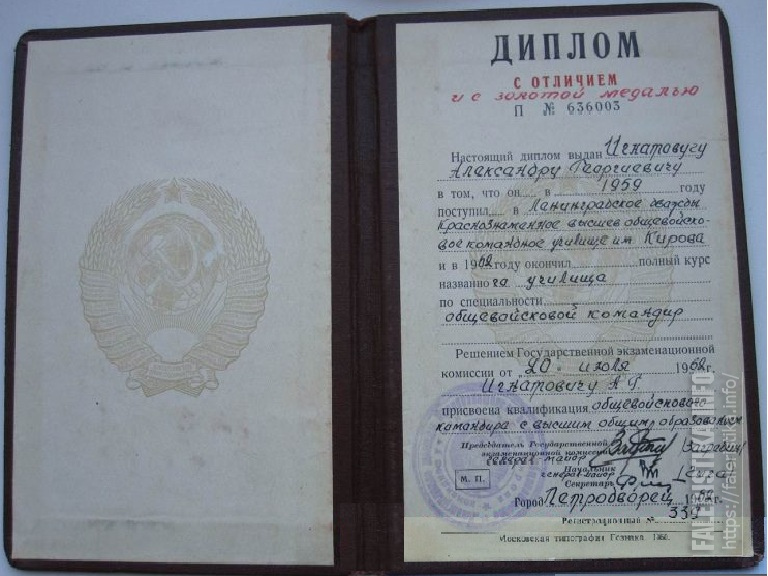 ДИПЛОМ
С ОТЛИЧИЕМ
и с золотой медалью
П № 636003
Настоящий диплом выдан Игнатовичу
Александру Георгиевичу
в том, что он в 1959 году
поступил в Ленинградское дважды
Краснознаменное высшее общевойско-
вое командное училище им. Кирова
и в 1962 году окончил полный курс
названного училища
по специальности
общевойсковой командир
Решением Государственной экзаменационной
комиссии от 20 июля 1962 г.
Игнатовичу А.Г.
присвоена квалификация общевойскового
командира с высшим общим образованием
Председатель Государственной
экзаменационной комиссии
генерал-майор
Начальник
генерал-майор
Секретарь
М. П.
Город Петродворец 1962 г.
Регистрационный № 339
Московская типография Гознака. 1960.
FALERISTIKA.INFO
https://faleristika.info/